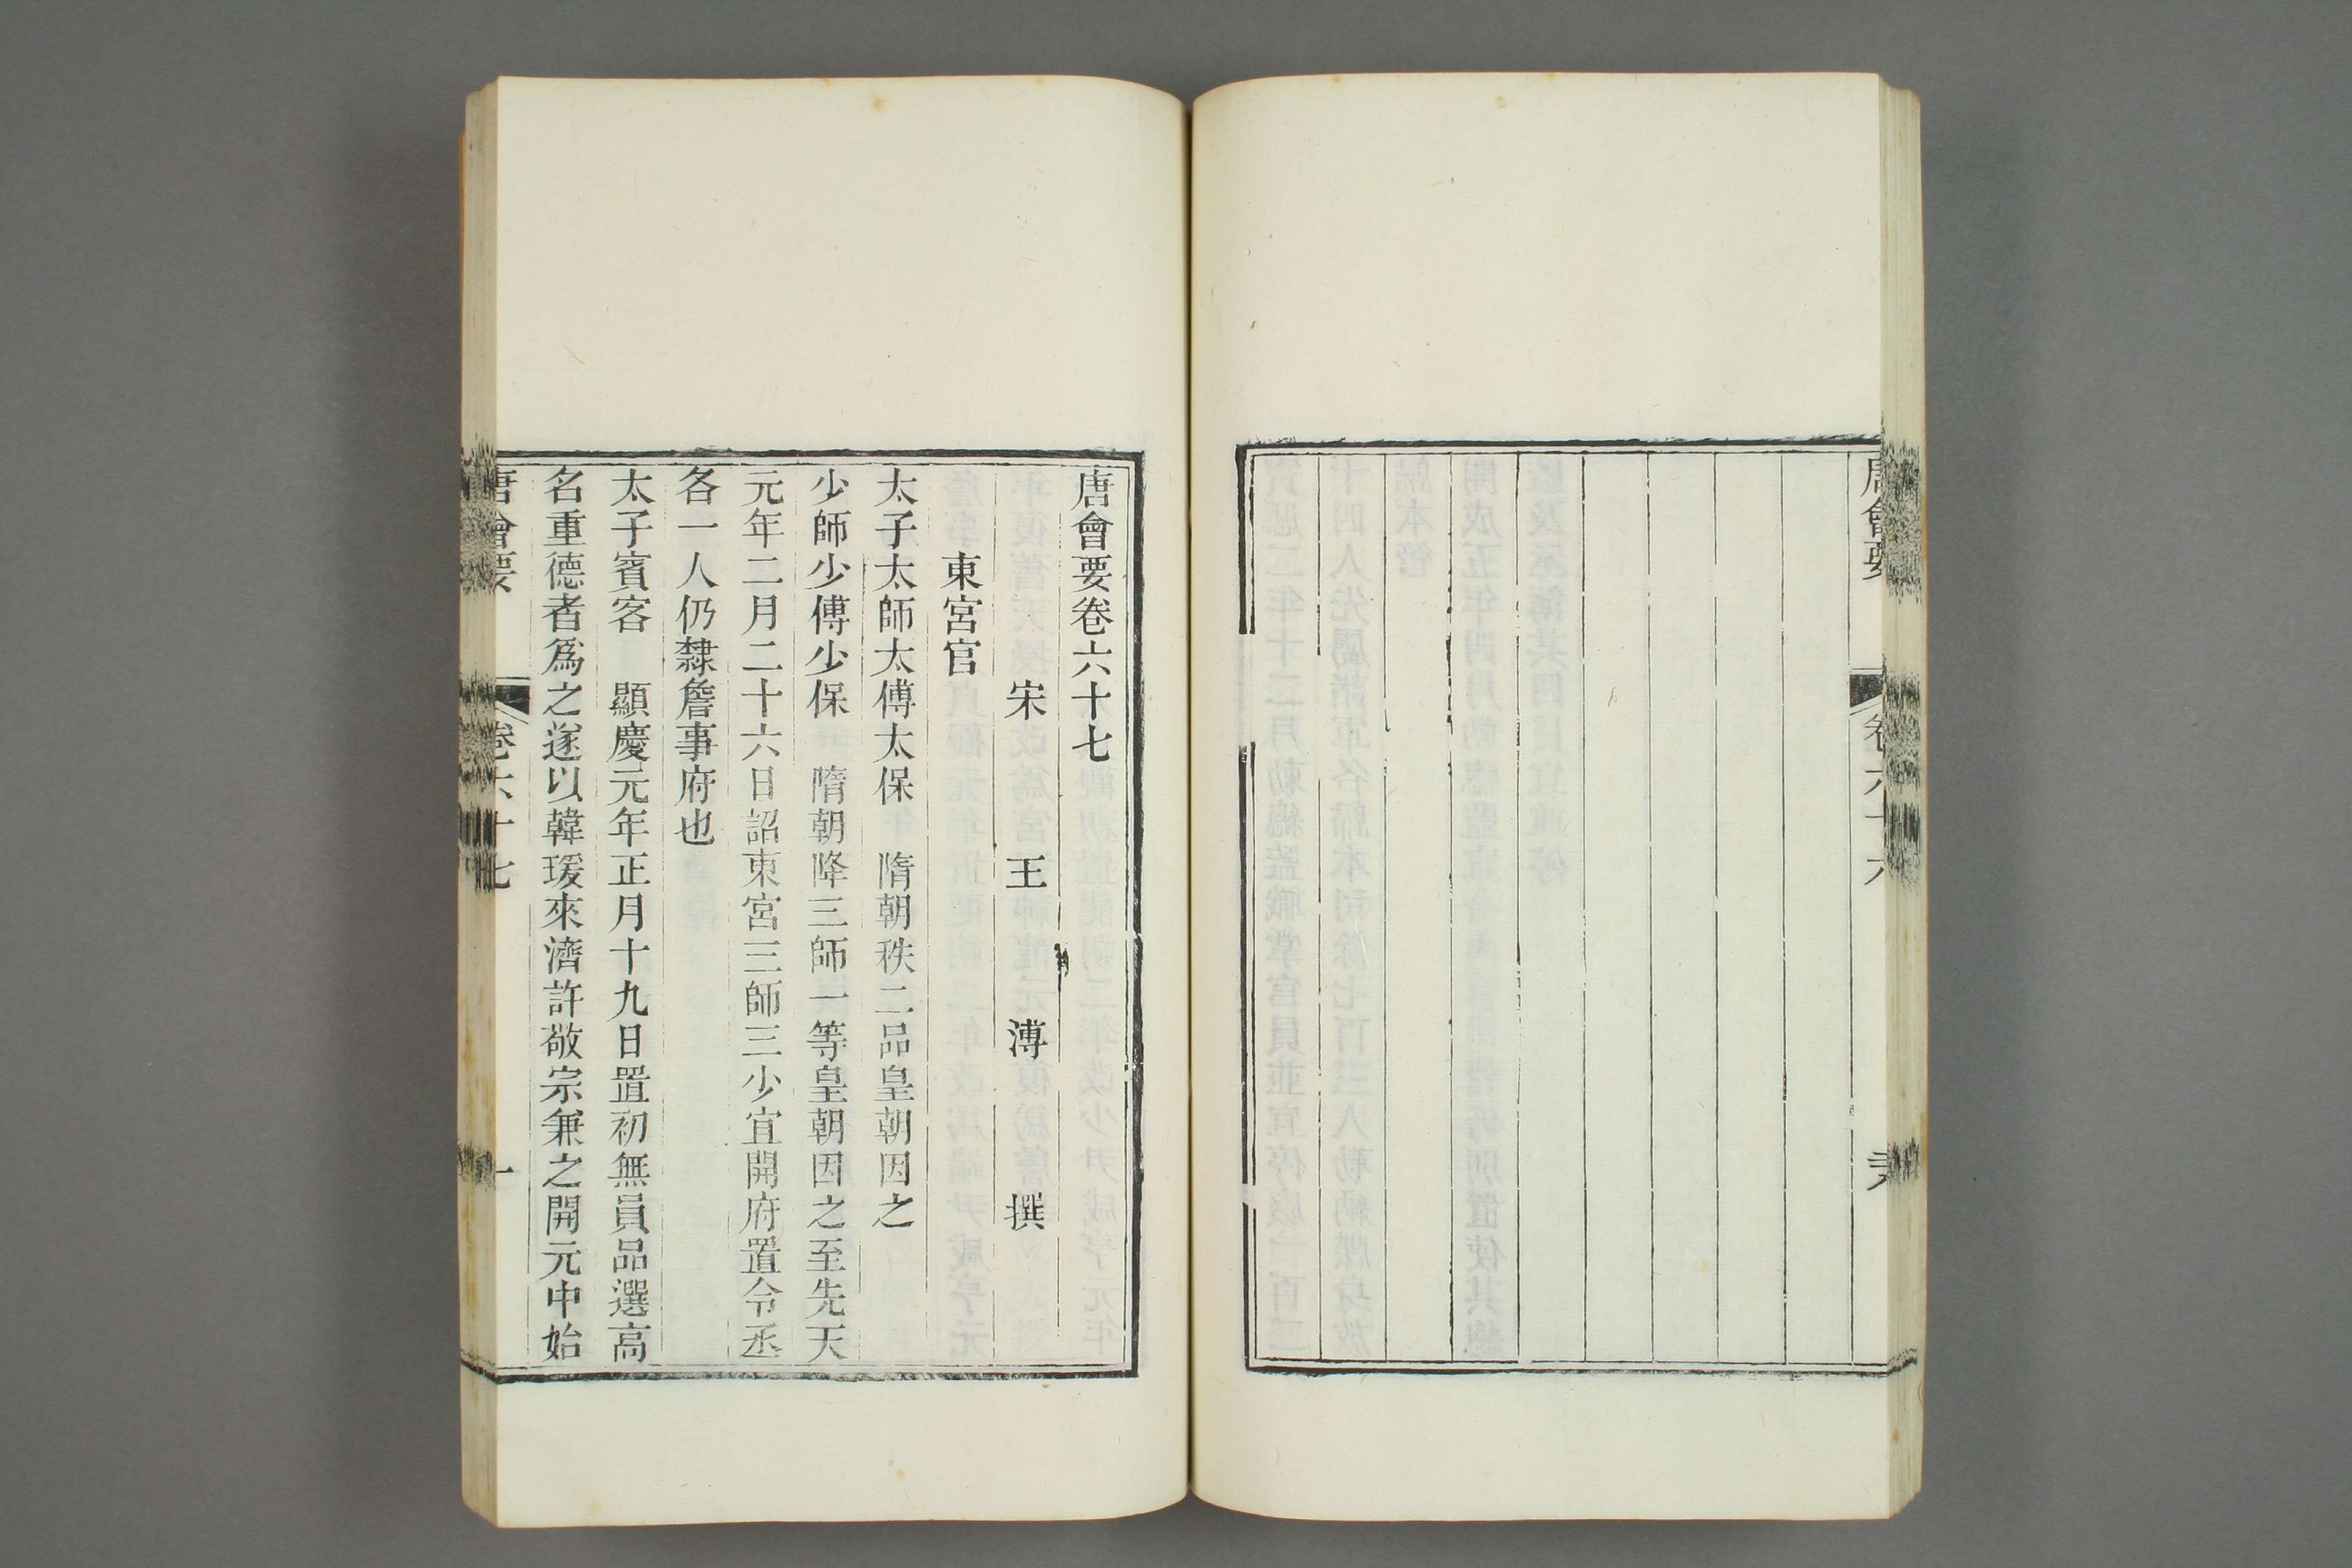 唐會要卷六十七
宋 王 溥 撰
東宮官
太子太師太傅太保 隋朝秩二品皇朝因之
少師少傅少保 隋朝降三師一等皇朝因之至先天
元年二月二十六日詔東宮三師三少宜開府置令丞
各一人仍隸詹事府也
太子賓客 顯慶元年正月十九日置初無員品選高
名重德者爲之遂以韓瑗來濟許敬宗兼之開元中始
唐會要 卷六十七 一
唐會要 卷六十六